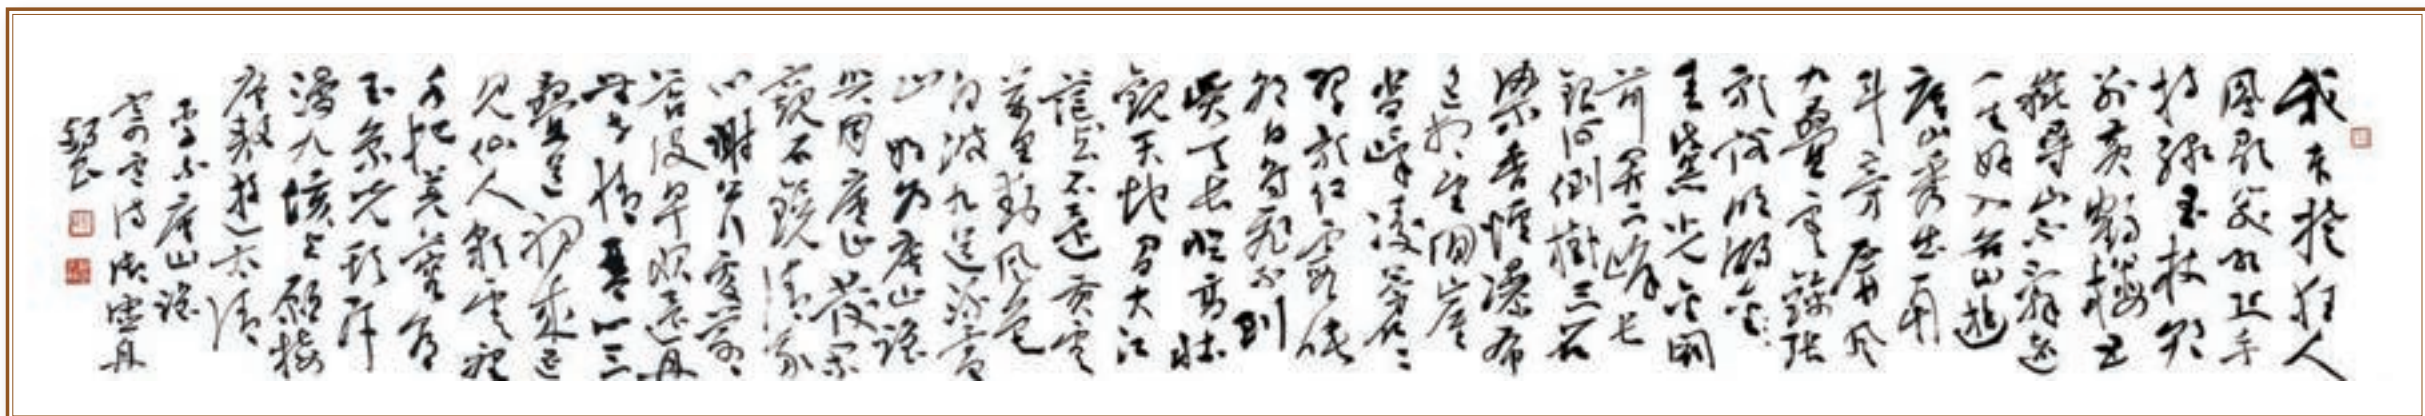 我本楚狂人
風歌笑孔丘手
持綠玉杖朝
別黃鶴樓五
嶽尋山不辭遠
一生好入名山遊
廬山秀出南
斗旁屏風
九疊雲錦張
影落明湖
青黛光金闕
前開二峰長
銀河倒掛三石
梁香爐瀑布
遙相望回崖
沓嶂凌蒼蒼
翠影紅霞映
朝日鳥飛不到
吳天長登高壯
觀天地間大江
茫茫去不還黃雲
萬里動風色
白波九道流雪
山好為廬山謠
興因廬山發閑
窺石鏡清我
心謝公行處蒼
苔沒早服還丹
無世情琴心三
疊道初成遙
見仙人彩雲裡
手把芙蓉朝
玉京先期汗
漫九垓上願接
盧敖遊太清
李白廬山謠
寄盧侍御虛舟